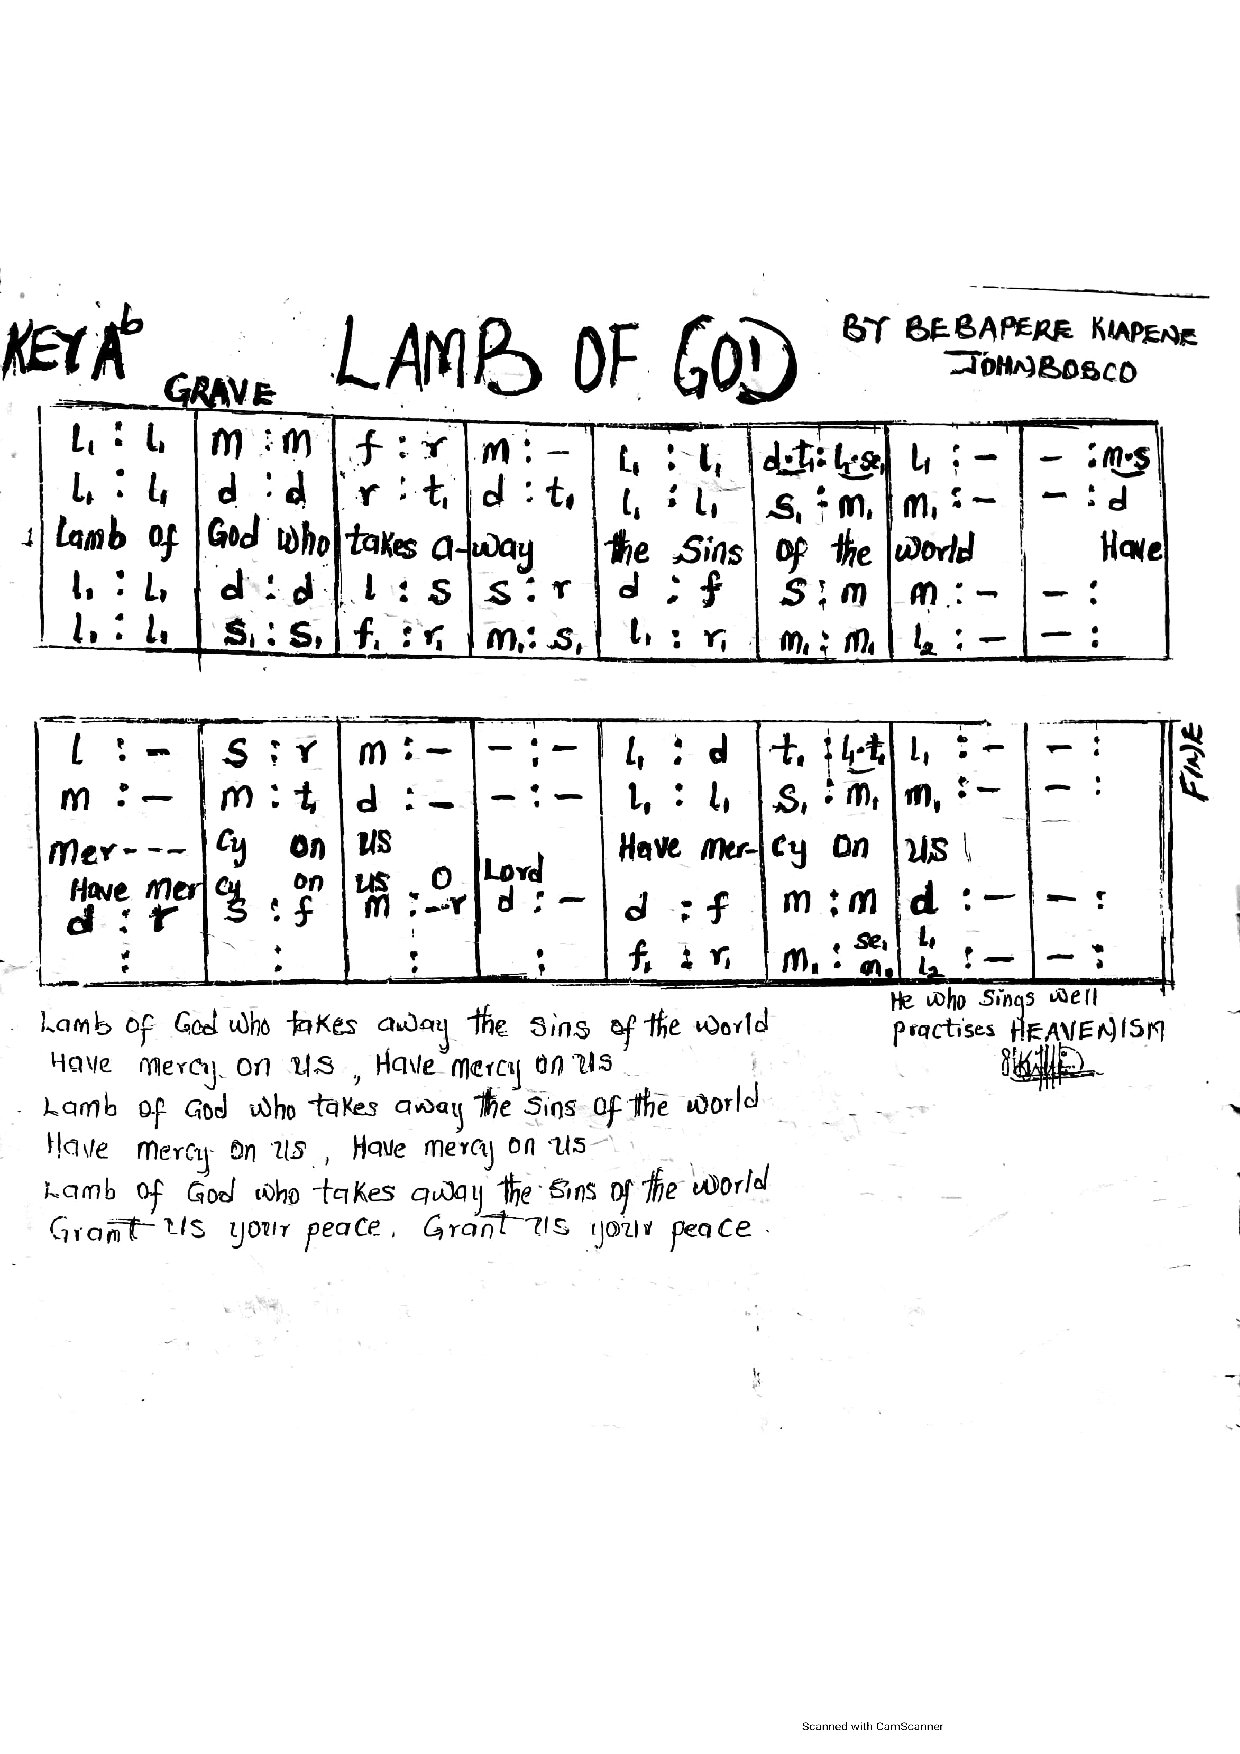 KEY A♭ LAMB OF GOD BY BEBAPERE KIAPENE
JOHNBOSCO
GRAVE
l₁ : l₁ | m : m | f : r | m : – | l₁ : l₁ | d.t₁ : l₁.se₁ | l₁ : – | – : m.s
l₁ : l₁ | d : d | r : t₁ | d : t₁ | l₁ : l₁ | s₁ : m₁ | m₁ : – | – : d
1 Lamb of God who takes a-way the Sins of the world Have
l₁ : l₁ | d : d | l : s | s : r | d : f | s : m | m : – | – :
l₁ : l₁ | s₁ : s₁ | f₁ : r₁ | m₁ : s₁ | l₁ : r₁ | m₁ : m₁ | l₂ : – | – :
l : – | s : r | m : – | – : – | l₁ : d | t₁ : l₁.t₁ | l₁ : – | – :
FINE
m : – | m : t₁ | d : – | – : – | l₁ : l₁ | s₁ : m₁ | m₁ : – | – :
Mer--- cy on us Have mer- cy on us
Have Mer cy on us O Lord
d : r | s : f | m : –.r | d : – | d : f | m : m | d : – | – :
: | : | : | : | f₁ : r₁ | m₁ : se₁ m₁ | l₁ l₂ : – | – :
He who sings well
practises HEAVENISM
Lamb of God who takes away the sins of the world
Have mercy on us, Have mercy on us
Lamb of God who takes away the sins of the world
Have mercy on us, Have mercy on us
Lamb of God who takes away the sins of the world
Grant us your peace. Grant us your peace.
Scanned with CamScanner